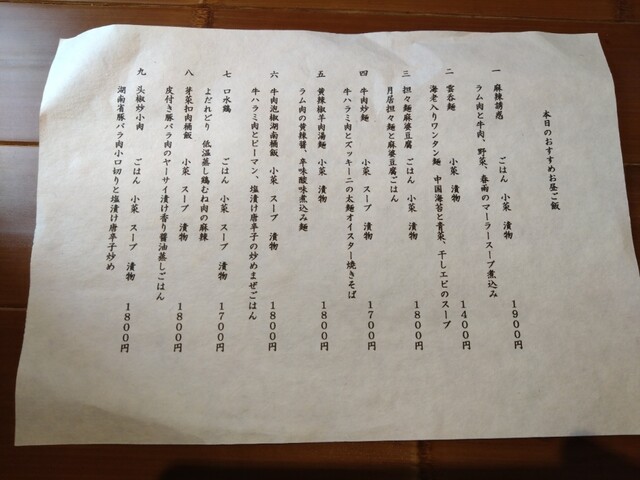 本日のおすすめお昼ご飯
一 麻辣誘惑 ごはん 小菜 漬物
ラム肉と牛肉、野菜、春雨のマーラースープ煮込み 1900円
二 雲呑麺 小菜 漬物
海老入りワンタン麺 中国海苔と青菜、干しエビのスープ 1400円
三 担々麺麻婆豆腐 ごはん 小菜 漬物
月居担々麺と麻婆豆腐ごはん 1800円
四 牛肉炒麺 小菜 スープ 漬物
牛ハラミ肉とズッキーニの太麺オイスター焼きそば 1700円
五 黄辣椒羊肉湯麺 小菜 漬物
ラム肉の黄辣醤、辛味酸味煮込み麺 1800円
六 牛肉泡椒湖南桶飯 小菜 スープ 漬物
牛ハラミ肉とピーマン、塩漬け唐辛子の炒めまぜごはん 1800円
七 口水鶏 ごはん 小菜 スープ 漬物
よだれどり 低温蒸し鶏むね肉の麻辣 1700円
八 芽菜扣肉桶飯 小菜 スープ 漬物
皮付き豚バラ肉のヤーサイ漬け香り醤油蒸しごはん 1800円
九 头椒炒小肉 ごはん 小菜 スープ 漬物
湖南省豚バラ肉小口切りと塩漬け唐辛子炒め 1800円